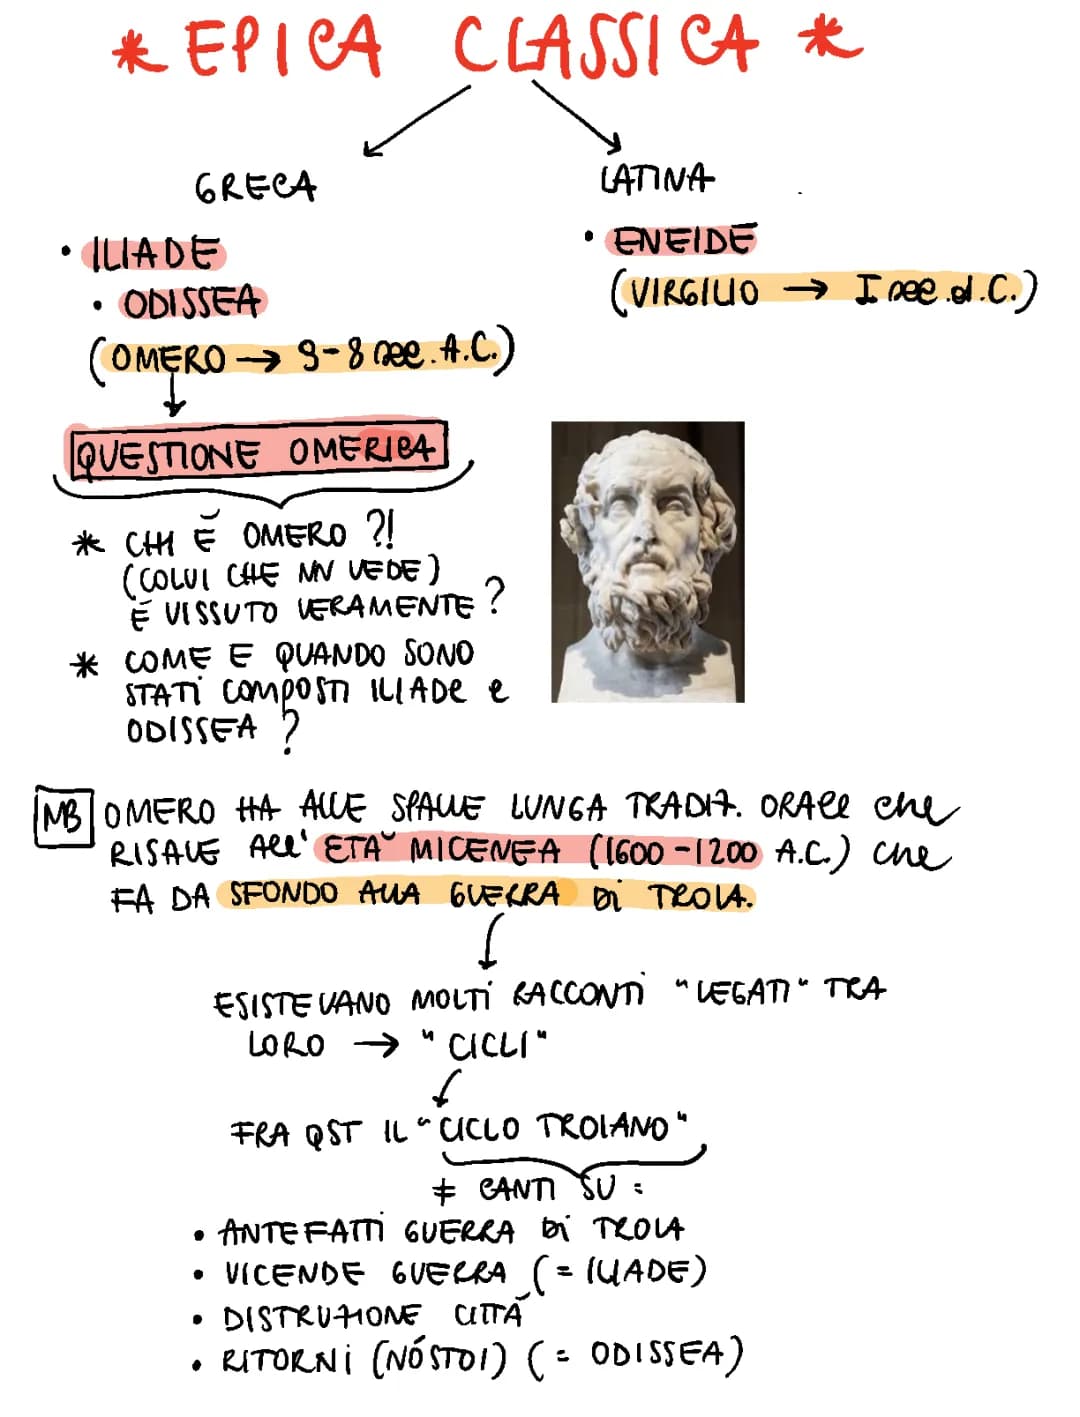 * EPICA CLASSICA *
GRECA
LATINA
• ILIADE
• ODISSEA
(OMERO → 9-8 sec. A.C.)
• ENEIDE
(VIRGILIO → I sec. d.C.)
QUESTIONE OMERICA
* CHI È OMERO ?!
(COLUI CHE NN VEDE)
È VISSUTO VERAMENTE ?
* COME E QUANDO SONO
STATI COMPOSTI ILIADE e
ODISSEA ?
NB OMERO HA ALLE SPALLE LUNGA TRADIZ. ORALE che
RISALE ALL' ETÀ MICENEA (1600-1200 A.C.) che
FA DA SFONDO ALLA GUERRA DI TROIA.
ESISTEVANO MOLTI RACCONTI "LEGATI" TRA
LORO → "CICLI"
FRA QST IL "CICLO TROIANO"
≠ CANTI SU :
• ANTEFATTI GUERRA DI TROIA
• VICENDE GUERRA (= ILIADE)
• DISTRUZIONE CITTÀ
• RITORNI (NÓSTOI) (= ODISSEA)